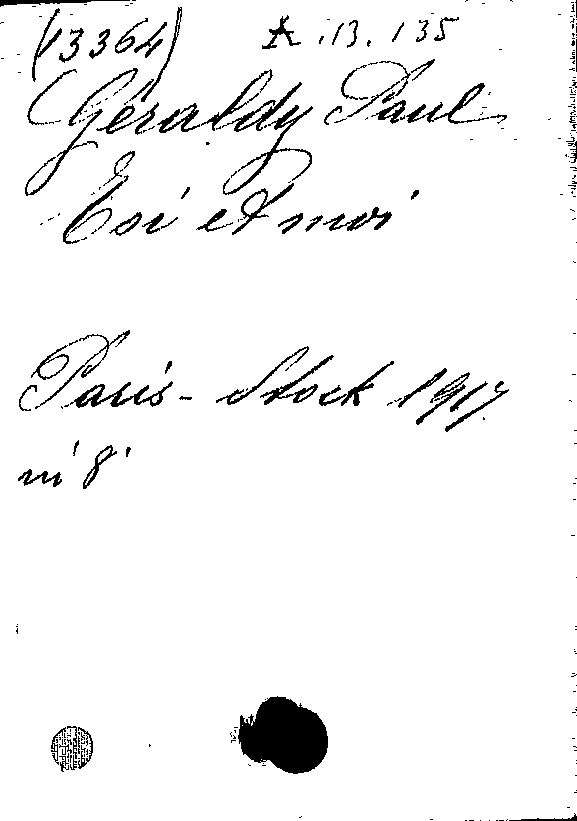 (13364) A.13.135
Géraldy Paul
Toi et moi
Paris - Stock 1917
in 8°